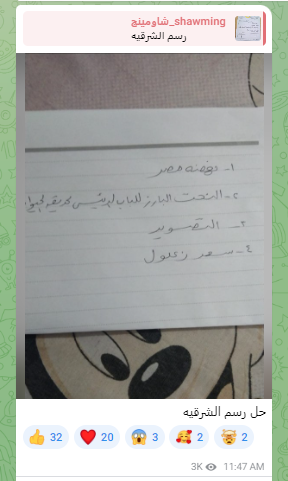 شاومينج_shawming
رسم الشرقيه
١- نهضة مصر
٢- النحت البارز للباب الرئيسى بحديقة
٣- التصوير
٤- سعد زغلول
حل رسم الشرقيه
👍 32 ❤️ 20 😱 3 🥰 2 🤯 2
3K 11:47 AM